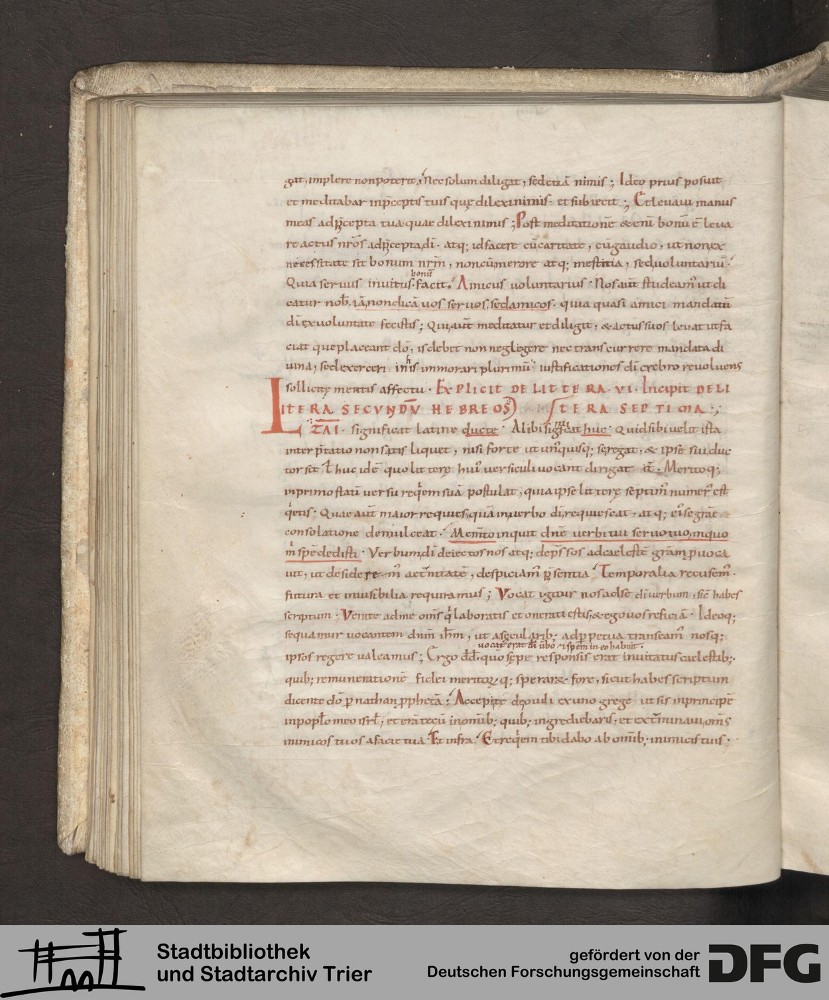 gat, implere non poterit; Nec solum diligat, sed etiā nimis; Ideo prius posuit
et meditabar in p̄ceptis tuis quę dilexi nimis. et subiecit; Et levavi manus
meas ad p̄cepta tua quae dilexi nimis; Post meditationē & enī bonū ē leva
re actus nr̄os ad p̄cepta dī. atq; id facere cū caritate, cū gaudio, ut non ex
necessitate sit bonum nr̄m, non cū merore atq; mestitia, sed voluntariū.
bonū
Quia servus invitus facit. Amicus voluntarius. Nos aūt studeam' ut di
catur nob. iā non dicā vos servos, sed amicos. quia quasi amici mandatū
dī ex voluntate fecistis; Qui aūt meditatur et diligit, & actus suos levat ut fa
ciat que placeant dō, is debet non neglegere nec transcurrere mandata di
vina, sed exerceri in his immorari plurimū. iustificationes dī crebro revolvens
sollicitę mentis affectu. EXPLICIT DE LITTERA. VI. Incipit DE LI
LITERA SECVNDV̄ HEBREOS LITERA SEPTIMA.
ZAI. significat latine ducte. Alibi significat huc. Quid sibi velit ista
interp̄tatio non satis liquet, nisi forte ut unusquisq; se regat, & ipse sui duc
tor sit ł huc idē quo litterę hui' versiculi vocant dirigat. Meritoq;
in primo statī versu req̇em suā postulat, quia ipse litterę septim' numer' est
q̇etis. Quae aūt maior requies, quā in verbo dī requiescat. atq; ei' se gr̄ae
consolatione demulceat. Memtō inquit dn̄e verbi tui servo tuo, in quo
m̄ spē dedisti. Verbum dī deiectos nos atq; dep̄ssos ad caelestē gr̄am p̄voca
vit, ut desiderem' aet̄nitatē, despiciam' p̄sentia. Temporalia recusem'.
futura et invisibilia requiramus; Vocat igitur nos absq; dī verbum, sic habes
scriptum. Venite ad me om̄s q̇ laboratis et onerati estis, & ego vos reficiā. Ideoq;
sequamur vocantem dn̄m ih̄m, ut a secularib; ad p̄petua transeam' nosq;
vocat' erat dī verbo & spem in eo habuit.
ipsos regere valeamus; Ergo dd̄. quo sępe responsis erat invitatus caelestib;.
quib; remunerationē fidei meritorūq; sperarat fore, sicut habes scriptum
dicente dō p nathan p̄phetā. Accepi te de ovili ex uno grege ut sis in principē
in pop̄lo meo isr̄l, et erā tecū in omīb; quib; ingrediebaris, et ext̄minavi om̄s
inimicos tuos a facie tua. Et infra. Et req̇em tibi dabo ab omīb; inimicis tuis.
Stadtbibliothek
und Stadtarchiv Trier
gefördert von der
Deutschen Forschungsgemeinschaft
DFG